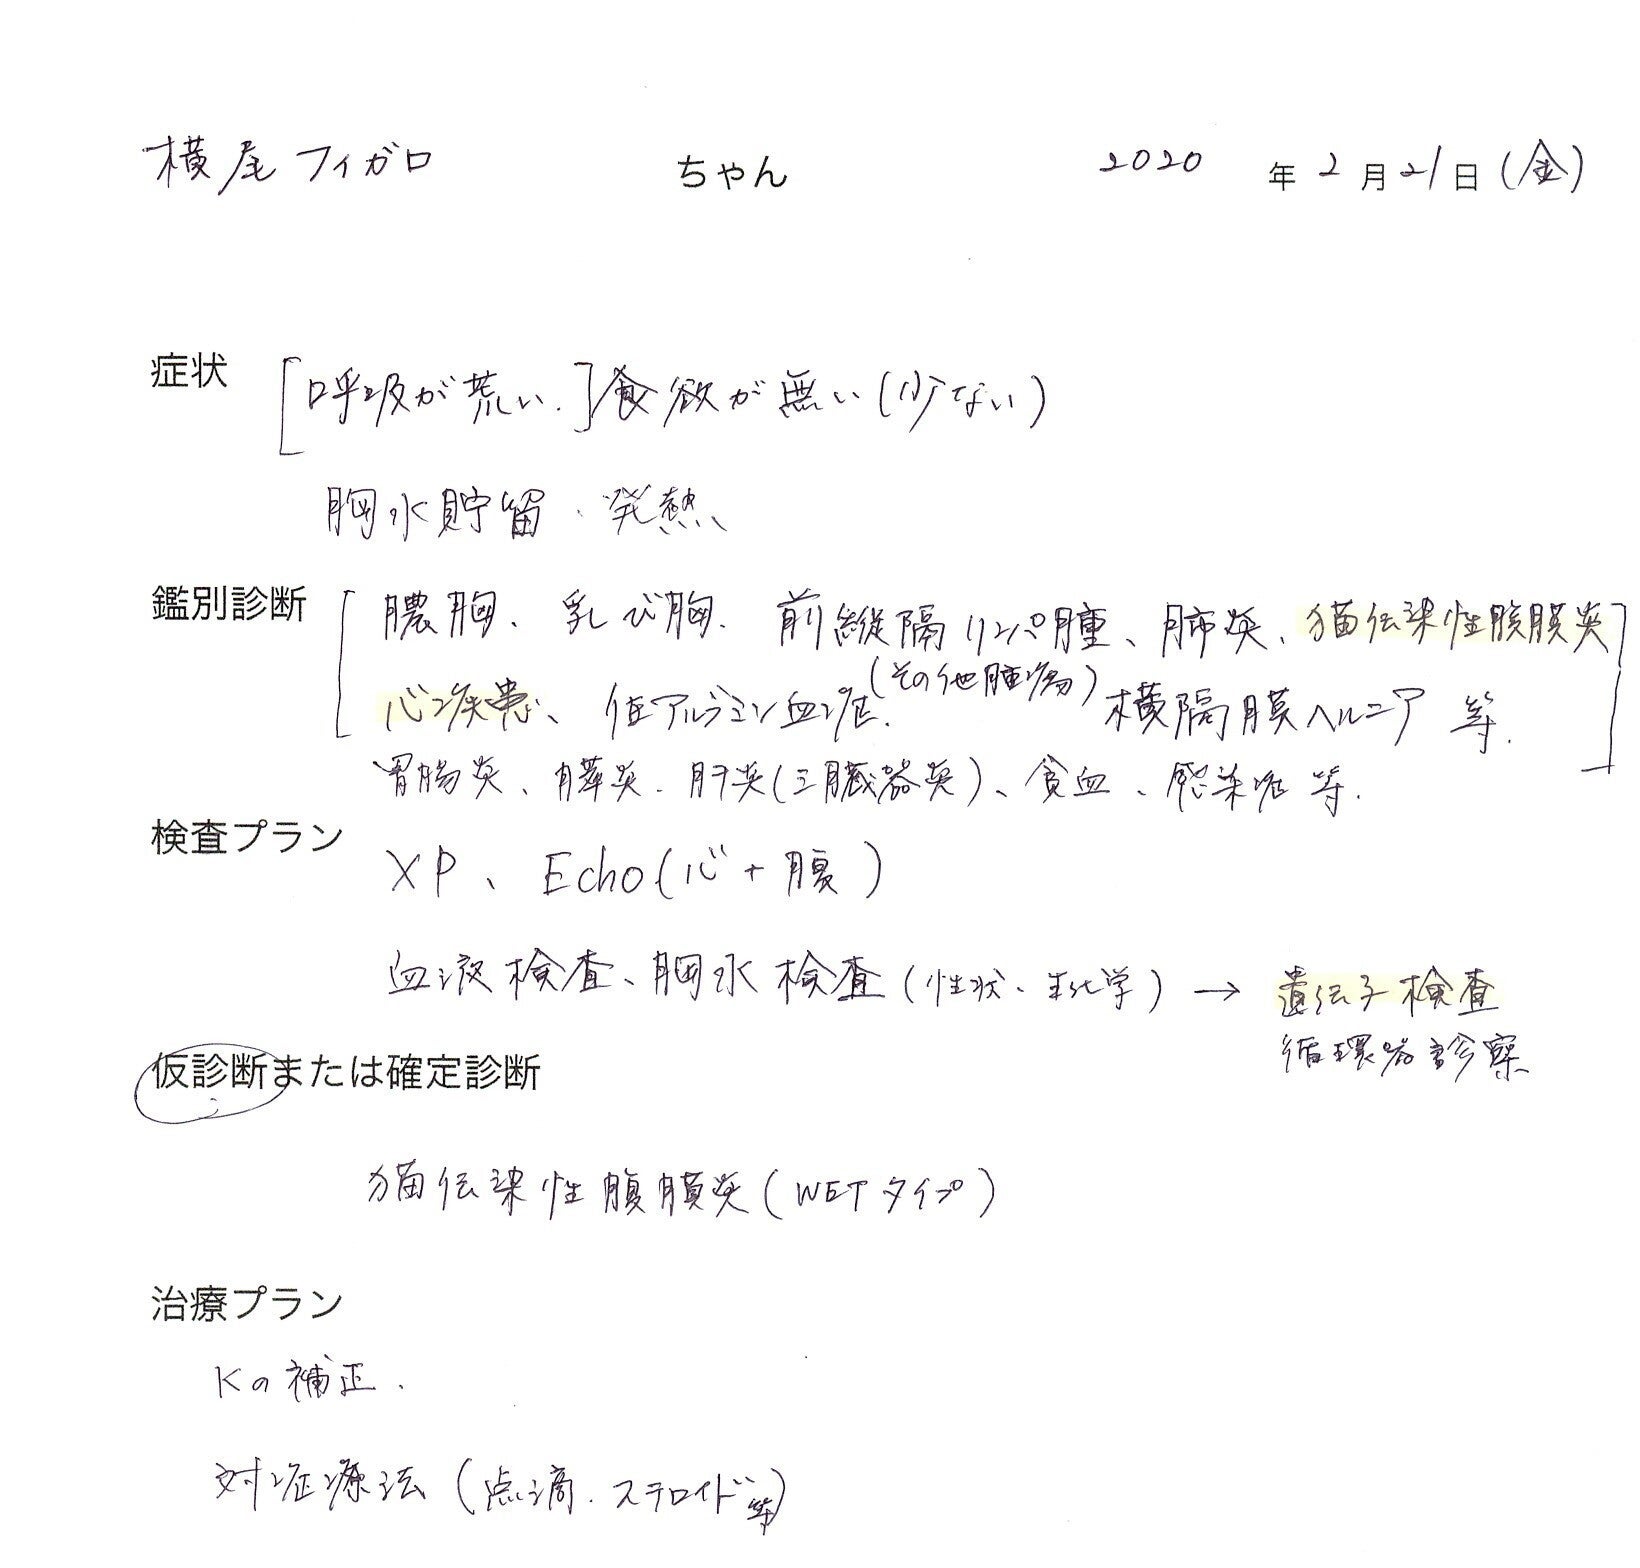 横尾フィガロ ちゃん 2020 年 2 月 21 日 (金)
症状 [呼吸が荒い.] 食欲が無い (少ない)
胸水貯留、発熱
鑑別診断 [膿胸、乳び胸、前縦隔リンパ腫、肺炎、猫伝染性腹膜炎
心疾患、低アルブミン血症、(その他腫瘍) 横隔膜ヘルニア 等.]
胃腸炎、膵炎、肝炎(三臓器炎)、貧血、感染症 等.
検査プラン
XP、Echo(心+腹)
血液検査、胸水検査 (性状、生化学) → 遺伝子検査
循環器診察
仮診断または確定診断
猫伝染性腹膜炎 (WETタイプ)
治療プラン
Kの補正.
対症療法 (点滴、ステロイド等)